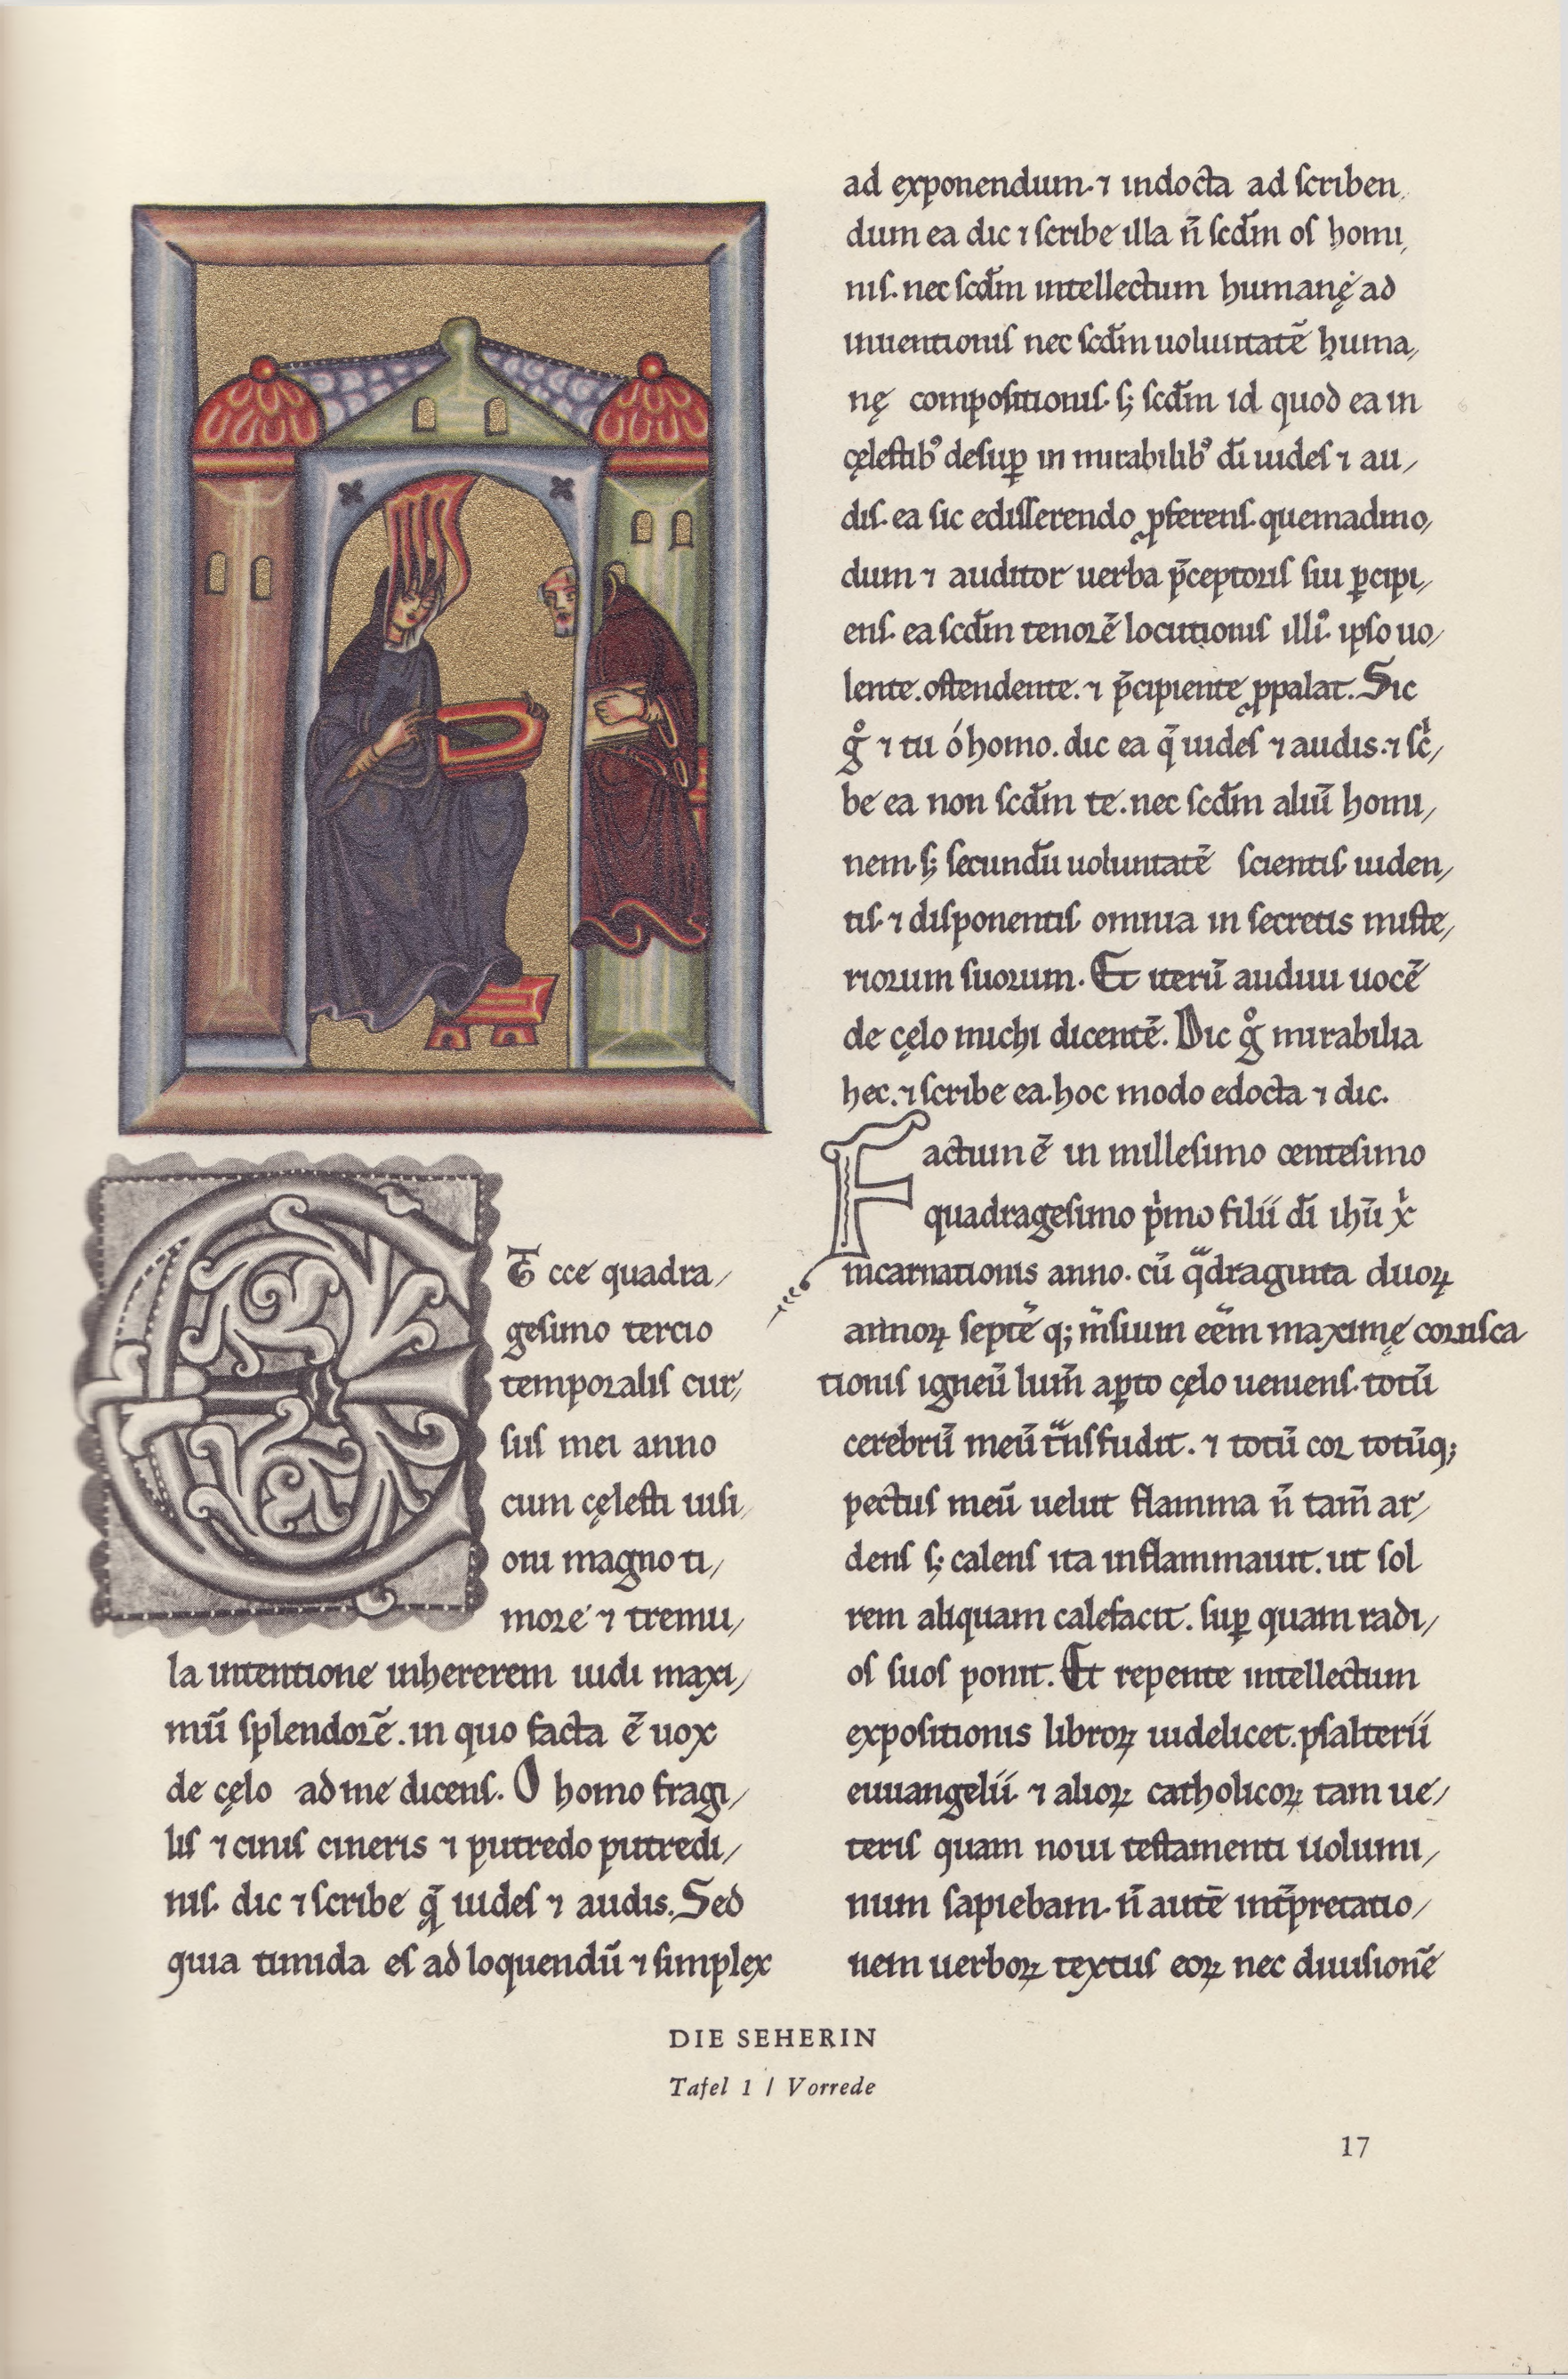 Et ecce quadra/
gesimo tercio
temporalis cur/
sus mei anno
cum cęlesti uisi/
oni magno ti/
more ⁊ tremu/
la intentione inhererem uidi maxi/
mū splendorē. in quo facta ē uox
de cęlo ad me dicens. O homo fragi/
lis ⁊ cinis cineris ⁊ putredo putredi/
nis. dic ⁊ scribe q̄ uides ⁊ audis. Sed
quia timida es ad loquendū ⁊ simplex
ad exponendum. ⁊ indocta ad scriben/
dum ea dic ⁊ scribe illa n̄ scd̄m os homi/
nis. nec scd̄m intellectum humanę ad
inuentionis nec scd̄m uoluntatē huma/
nę compositionis. s; scd̄m id quod ea in
cęlestibꝰ desuꝑ in mirabilibꝰ dī uides ⁊ au/
dis. ea sic edisserendo ꝓferens. quemadmo/
dum ⁊ auditor uerba p̄ceptoris sui ꝑcipi/
ens. ea scd̄m tenorē locutionis illiꝰ. ipso uo/
lente. ostendente. ⁊ p̄cipiente ꝓpalat. Sic
gͦ ⁊ tu ó homo. dic ea q̄ uides ⁊ audis. ⁊ scͥ/
be ea non scd̄m te. nec scd̄m aliū homi/
nem. s; secundū uoluntatē scientis uiden/
tis. ⁊ disponentis omnia in secretis miste/
riorum suorum. Et iterū audiui uocē
de cęlo michi dicentē. Dic gͦ mirabilia
hec. ⁊ scribe ea. hoc modo edocta ⁊ dic.
Factum ē in millesimo centesimo
quadragesimo pͥmo filii dī ihū xͥ
incarnationis anno. cū qͣdraginta duoꝝ
annoꝝ septē q; m̄sium eēm maximę corusca
tionis igneū lum̄ aꝑto cęlo ueniens. totū
cerebrū meū tͣnsfudit. ⁊ totū cor totūq;
pectus meū uelut flamma n̄ tam̄ ar/
dens s; calens ita inflammauit. ut sol
rem aliquam calefacit. suꝑ quam radi/
os suos ponit. Et repente intellectum
expositionis libroꝝ uidelicet. psalterii
euuangelii. ⁊ alioꝝ catholicoꝝ tam ue/
teris quam noui testamenti uolumi/
num sapiebam. n̄ autē int̄pretatio/
nem uerboꝝ textus eoꝝ nec diuisionē
DIE SEHERIN
Tafel 1 / Vorrede
17